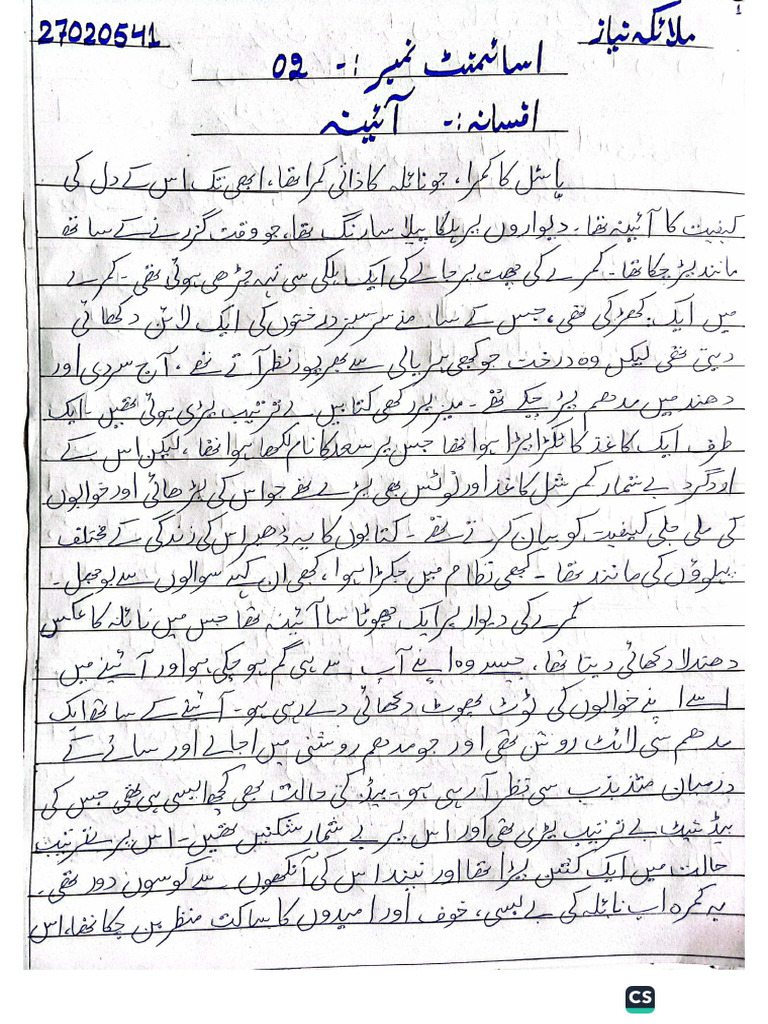 ملائکہ نیاز 27020541
اسائمنٹ نمبر :- 02
افسانہ :- آئینہ
ہاسٹل کا کمرا، جو نائلہ کا ذاتی کمرا تھا، ابھی تک اس کے دل کی
کیفیت کا آئینہ تھا۔ دیواروں پر ہلکا پیلا سا رنگ تھا، جو وقت گزرنے کے ساتھ
ماند پڑ چکا تھا۔ کمرے کی چھت پر جالے کی ایک ہلکی سی تہہ چڑھی ہوئی تھی۔ کمرے
میں ایک کھڑکی تھی، جس کے سامنے سرسبز درختوں کی ایک لائن دکھائی
دیتی تھی لیکن وہ درخت جو کبھی ہریالی سے بھرپور نظر آتے تھے، آج سردی اور
دھند میں مدھم پڑ چکے تھے۔ میز پر رکھی کتابیں بے ترتیب پڑی ہوئی تھیں۔ ایک
طرف ایک کاغذ کا ٹکڑا پڑا ہوا تھا جس پر سعد کا نام لکھا ہوا تھا، لیکن اس کے
اردگرد بے شمار کمرشل کاغذ اور نوٹس بھی پڑے تھے جو اس کی پڑھائی اور خوابوں
کی ملی جلی کیفیت کو بیان کرتے تھے۔ کتابوں کا یہ ڈھیر اس کی زندگی کے مختلف
پہلوؤں کی مانند تھا۔ کبھی نظام میں جکڑا ہوا، کبھی ان کہے سوالوں سے بوجھل۔
کمرے کی دیوار پر ایک چھوٹا سا آئینہ تھا جس میں نائلہ کا عکس
دھندلا دکھائی دیتا تھا، جیسے وہ اپنے آپ سے ہی گم ہو چکی ہو اور آئینے میں
اسے اپنے خوابوں کی ٹوٹ پھوٹ دکھائی دے رہی ہو۔ آئینے کے ساتھ ایک
مدھم سی لائٹ روشن تھی اور جو مدھم روشنی میں اجالے اور سائے کے
درمیان متذبذب سی نظر آ رہی ہو۔ بیڈ کی حالت بھی کچھ ایسی ہی تھی جس کی
بیڈ شیٹ بے ترتیب پڑی تھی اور اس پر بے شمار شکنیں تھیں۔ اس پر بے ترتیب
حالت میں ایک کشن پڑا تھا اور نیند اس کی آنکھوں سے کوسوں دور تھی۔
یہ کمرہ اب نائلہ کی بے بسی، خوف اور امیدوں کا ساکت منظر بن چکا تھا، اس
CS